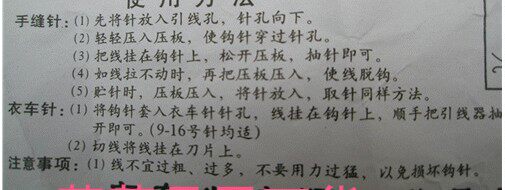 使用方法
手缝针：(1) 先将针放入引线孔，针孔向下。
(2) 轻轻压入压板，使钩针穿过针孔。
(3) 把线挂在钩针上，松开压板，抽针即可。
(4) 如线拉不动时，再把压板压入，使线脱钩。
(5) 贮针时，压板压入，将针放入，取针同样方法。
衣车针：(1) 将钩针套入衣车针针孔，线挂在钩针上，顺手把引线器抽
开即可。(9-16号针均适)
(2) 切线将线挂在刀片上。
注意事项：(1) 线不宜过粗、过多，不要用力过猛，以免损坏钩针。